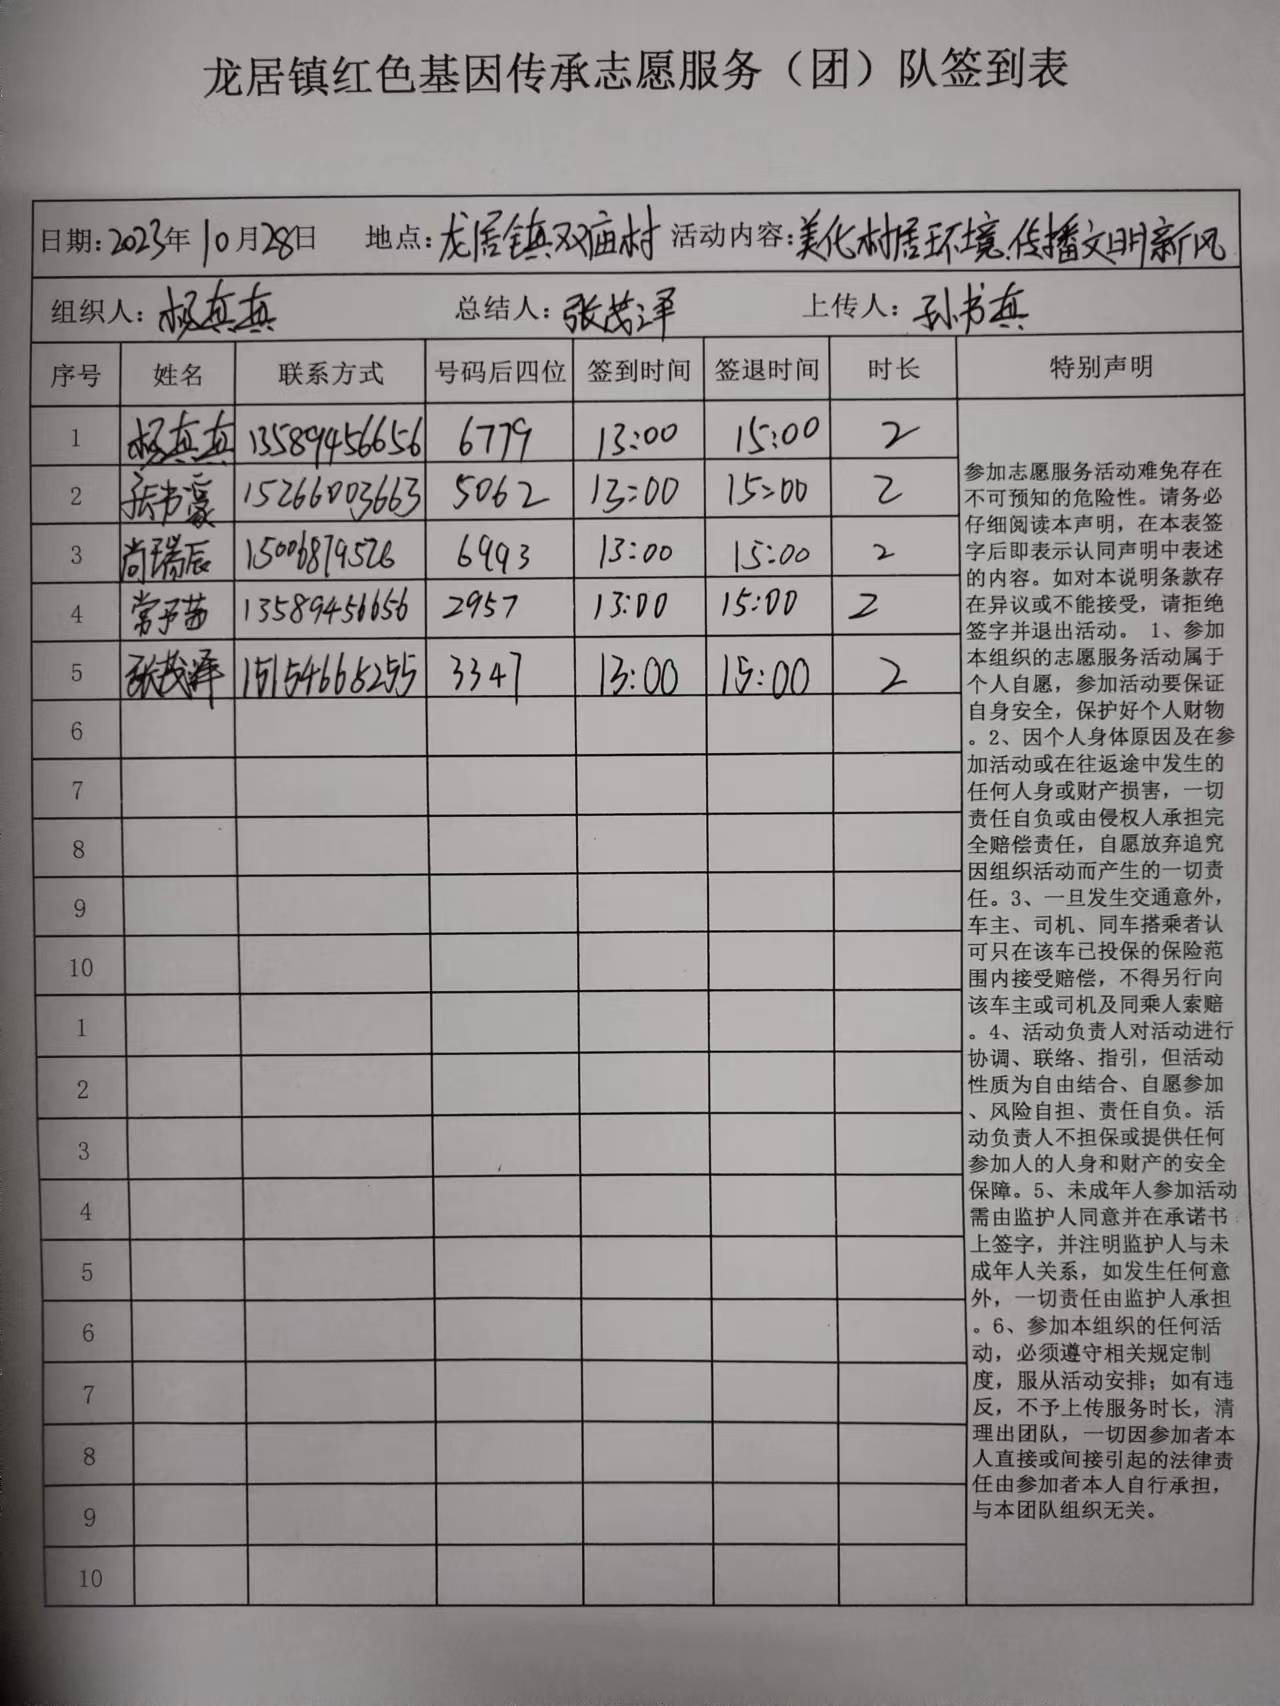 龙居镇红色基因传承志愿服务（团）队签到表
日期:2023年10月28日 地点:龙居镇双庙村 活动内容:美化村居环境、传播文明新风
组织人:杨真真 总结人:张茂泽 上传人:孙书真
序号 姓名 联系方式 号码后四位 签到时间 签退时间 时长 特别声明
1 杨真真 13589456656 6779 13:00 15:00 2
2 张书豪 15266003663 5062 13:00 15:00 2
3 尚瑞辰 15006879526 6993 13:00 15:00 2
4 常子茜 13589456656 2957 13:00 15:00 2
5 张茂泽 15154665255 3347 13:00 15:00 2
6
7
8
9
10
1
2
3
4
5
6
7
8
9
10
参加志愿服务活动难免存在
不可预知的危险性。请务必
仔细阅读本声明，在本表签
字后即表示认同声明中表述
的内容。如对本说明条款存
在异议或不能接受，请拒绝
签字并退出活动。 1、参加
本组织的志愿服务活动属于
个人自愿，参加活动要保证
自身安全，保护好个人财物
。2、因个人身体原因及在参
加活动或在往返途中发生的
任何人身或财产损害，一切
责任自负或由侵权人承担完
全赔偿责任，自愿放弃追究
因组织活动而产生的一切责
任。3、一旦发生交通意外，
车主、司机、同车搭乘者认
可只在该车已投保的保险范
围内接受赔偿，不得另行向
该车主或司机及同乘人索赔
。4、活动负责人对活动进行
协调、联络、指引，但活动
性质为自由结合、自愿参加
、风险自担、责任自负。活
动负责人不担保或提供任何
参加人的人身和财产的安全
保障。5、未成年人参加活动
需由监护人同意并在承诺书
上签字，并注明监护人与未
成年人关系，如发生任何意
外，一切责任由监护人承担
。6、参加本组织的任何活
动，必须遵守相关规定制
度，服从活动安排；如有违
反，不予上传服务时长，清
理出团队，一切因参加者本
人直接或间接引起的法律责
任由参加者本人自行承担，
与本团队组织无关。